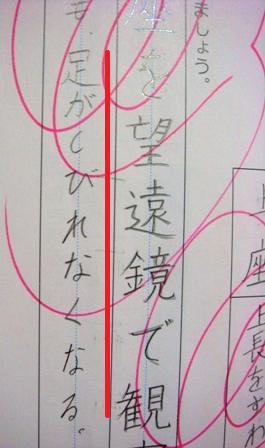 ましょう。
座
をすわ
座を望遠鏡で観
も、足がしびれなくなる。